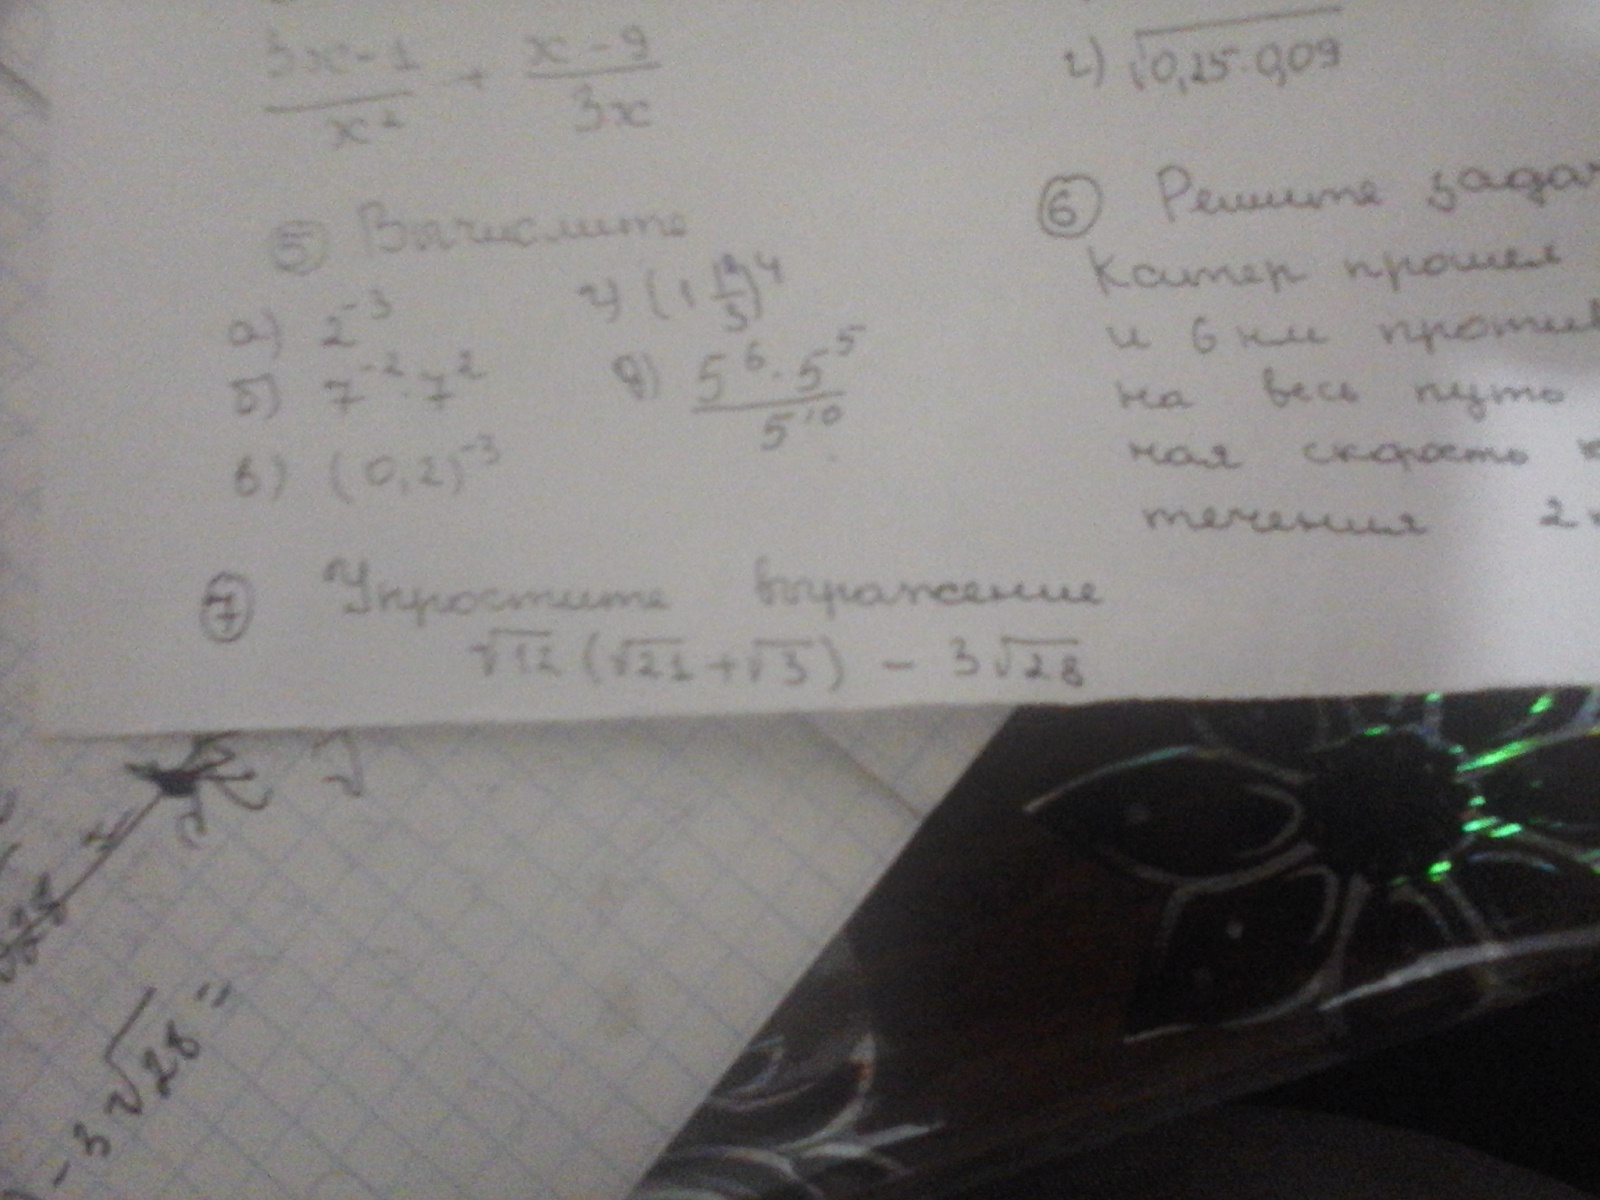 3x-1/x² + x-9/3x
г) √0,25·0,09
⑤ Вычислите
а) 2⁻³
г)
б) 7⁻²·7²
д) 5⁶·5⁵/5¹⁰
в) (0,2)⁻³
⑥ Решите
Катер прошел
и 6 км
на весь путь
ная скорость
течения 2
⑦ Упростите выражение
√12 (√21+√3) - 3√28
- 3√28 =